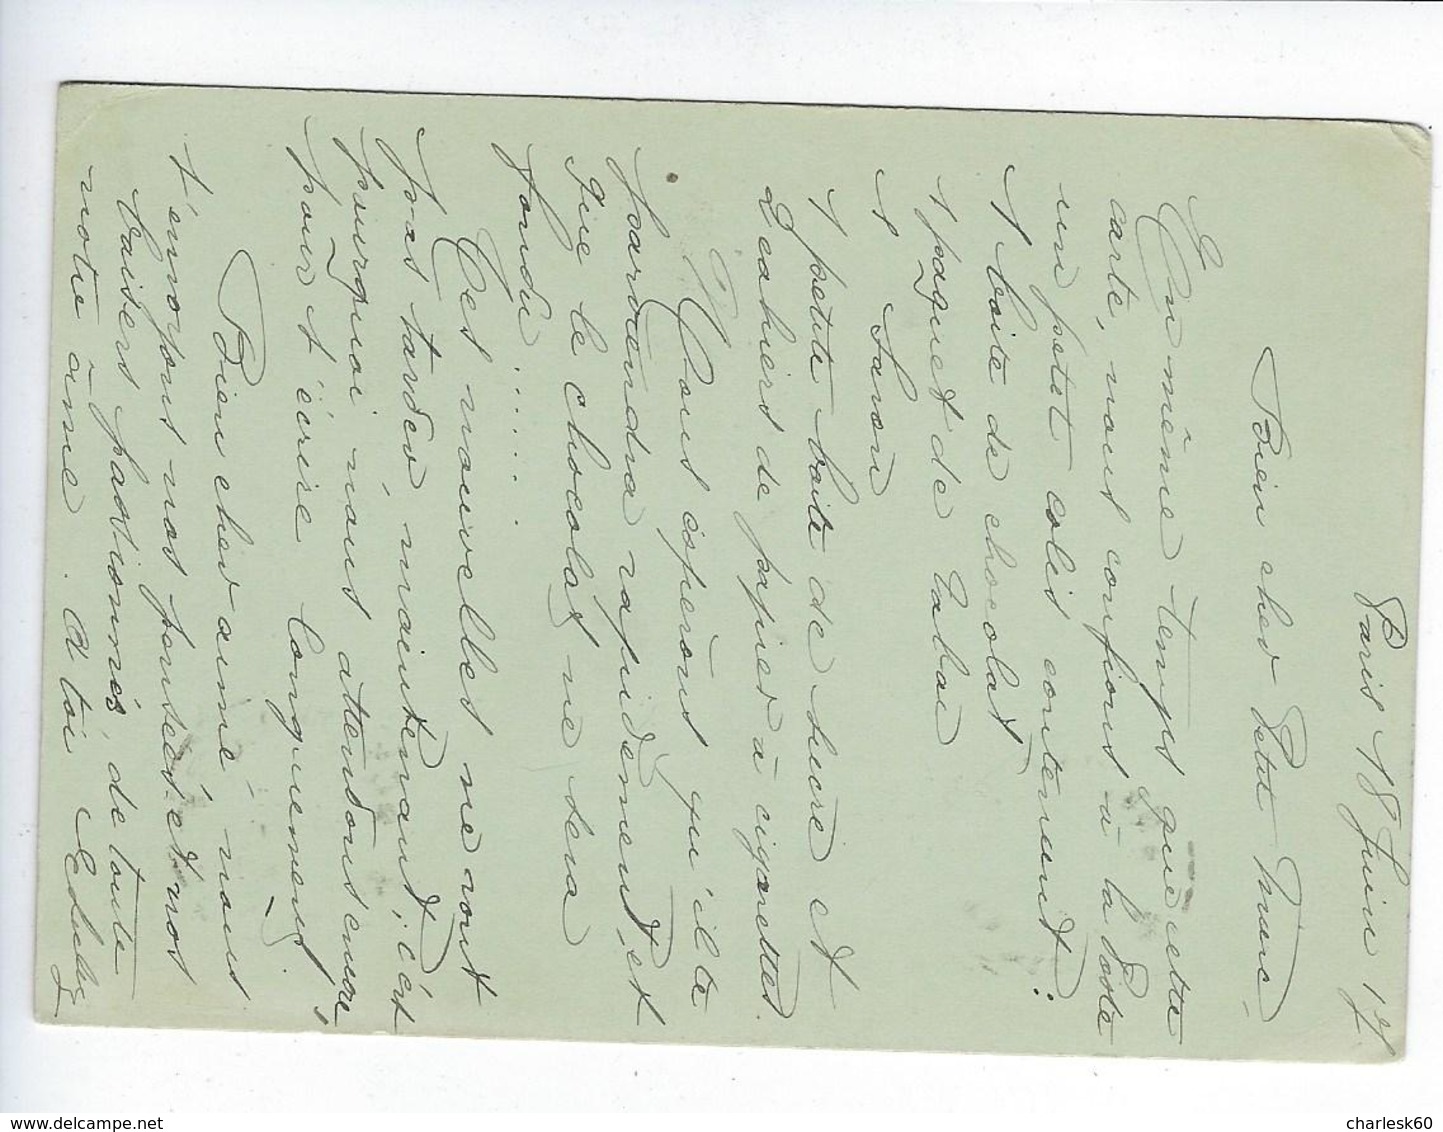 Paris 18 Juin 17
Bien cher Petit
En même temps que cette
carte, nous confions à la Poste
un petit colis contenant:
1 boite de chocolat
1 paquet de Tabac
1 Savon
1 petite boite de sucre et
2 cahiers de papier à cigarettes.
Nous espérons qu'il te
parviendra rapidement, et
que le chocolat ne sera
fondu .....
Tes nouvelles ne vont
pas tarder, maintenant, c'est
pourquoi nous attendons encore,
pour t'écrire longuement.
Bien cher aimé nous
t'envoyons nos pensées et nos
baisers passionnés, de toute
notre âme. A toi
www.delcampe.net
charlesk60